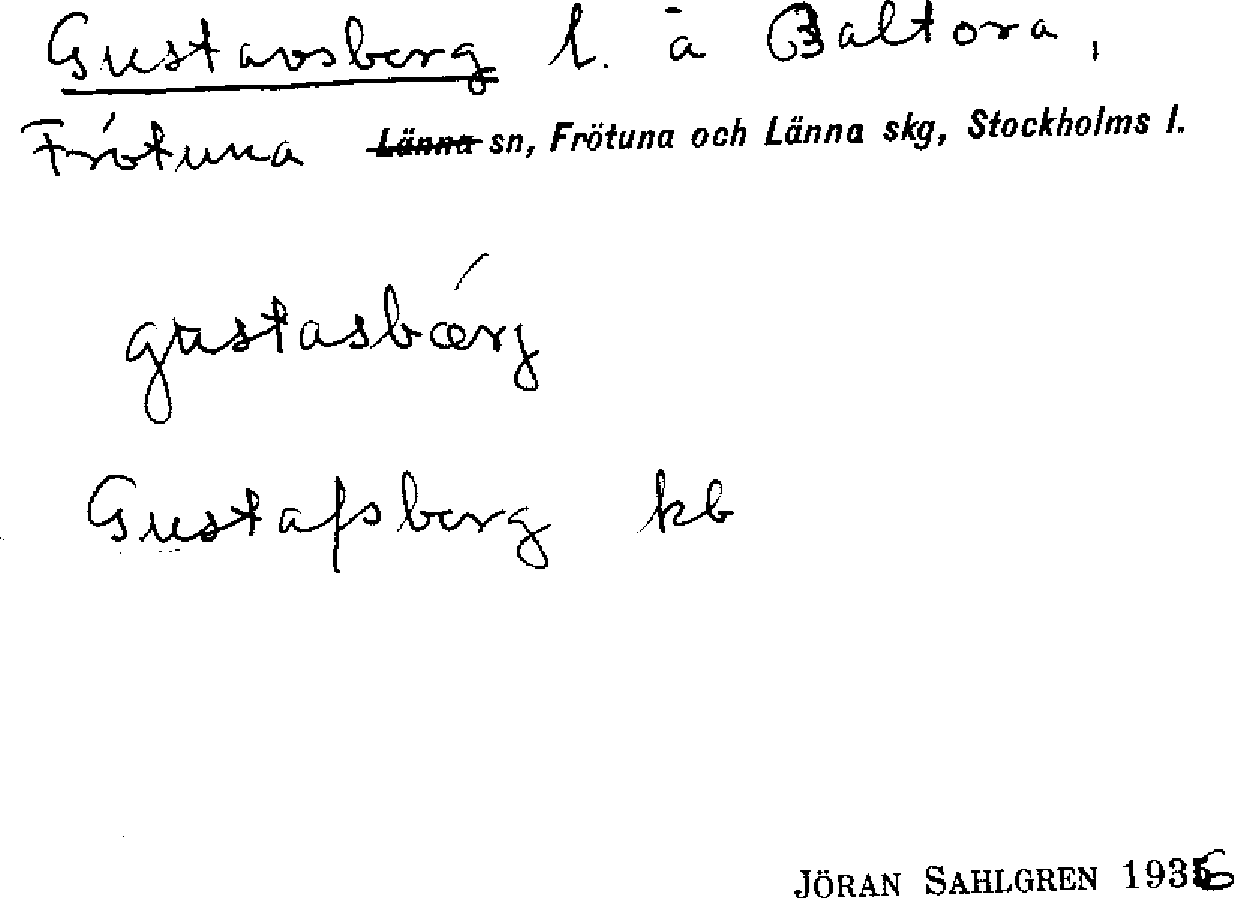 Gustavsberg l. å Baltora,
Frötuna ~~Länna~~ sn, Frötuna och Länna skg, Stockholms l.
gustasbǽrj
Gustafsberg kb
JÖRAN SAHLGREN 1936